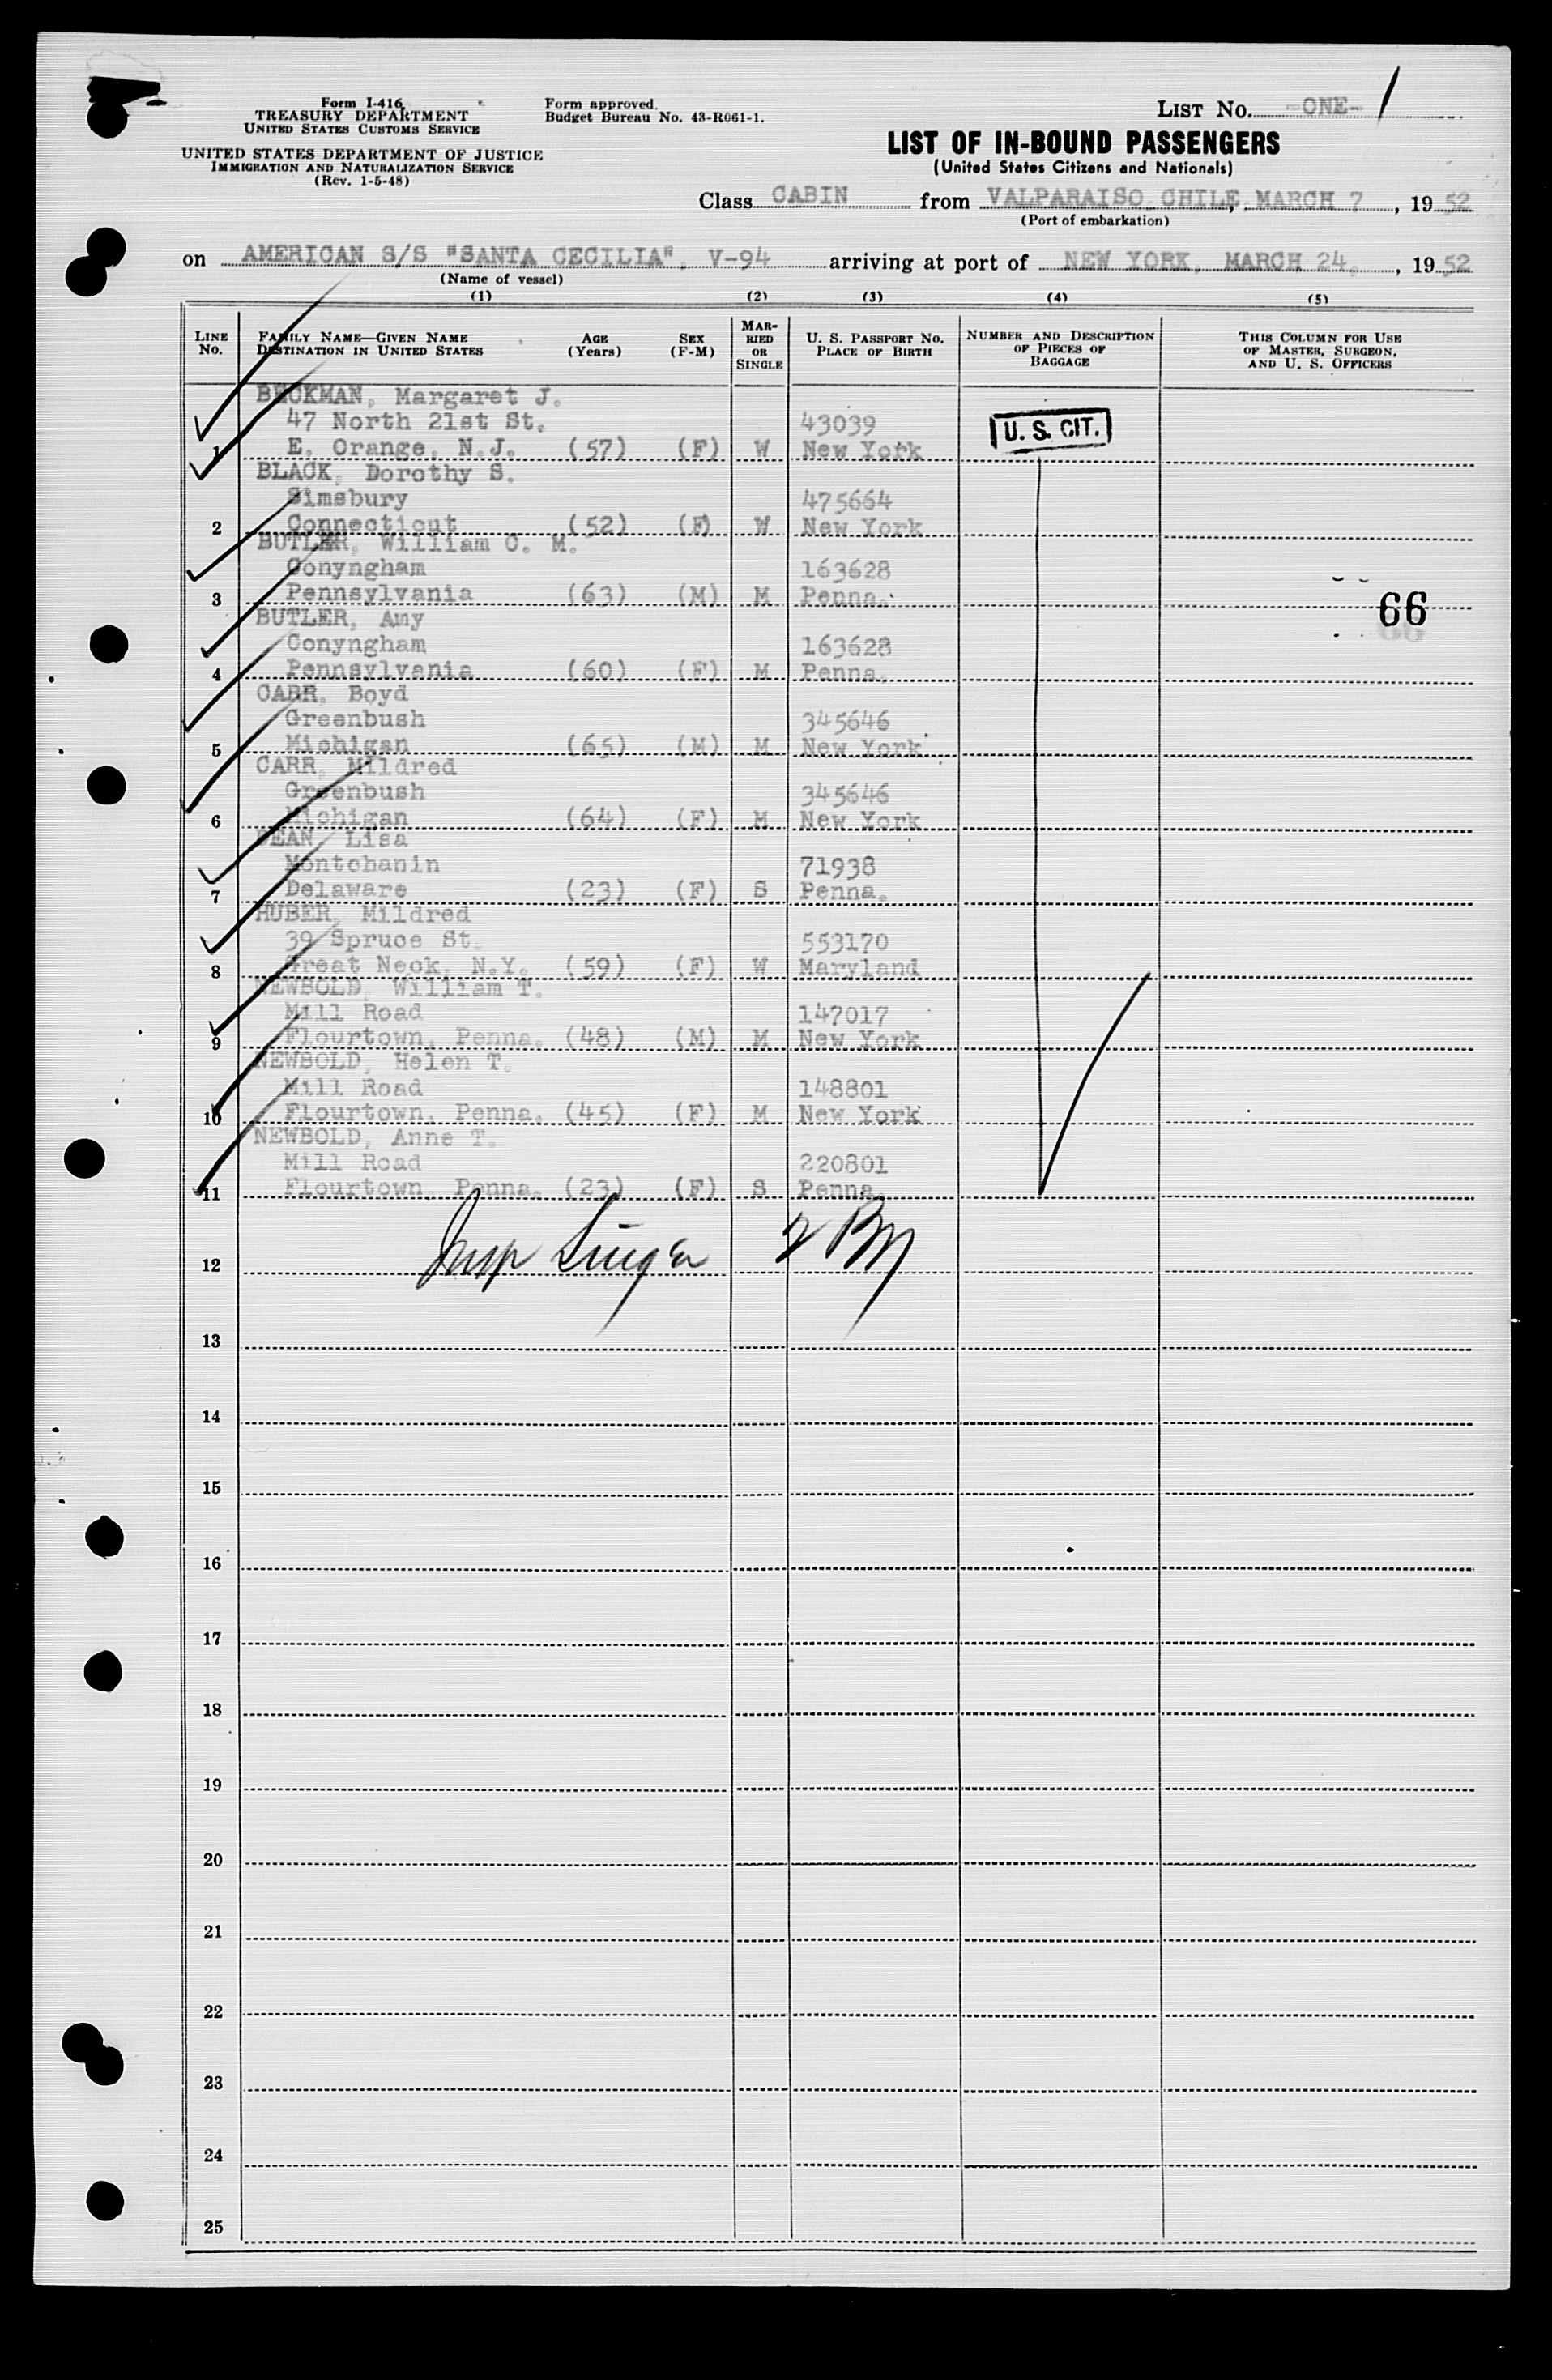 Form I-416
TREASURY DEPARTMENT
UNITED STATES CUSTOMS SERVICE
UNITED STATES DEPARTMENT OF JUSTICE
IMMIGRATION AND NATURALIZATION SERVICE
(Rev. 1-5-48)
Form approved.
Budget Bureau No. 43-R061-1.
LIST No. -ONE- 1
LIST OF IN-BOUND PASSENGERS
(United States Citizens and Nationals)
Class CABIN from VALPARAISO CHILE, MARCH 7, 1952
(Port of embarkation)
on AMERICAN S/S "SANTA CECILIA", V-94 arriving at port of NEW YORK, MARCH 24, 1952
(Name of vessel)
(1) (2) (3) (4) (5)
LINE No.
FAMILY NAME—GIVEN NAME
DESTINATION IN UNITED STATES
AGE (Years)
SEX (F-M)
MARRIED OR SINGLE
U. S. PASSPORT No.
PLACE OF BIRTH
NUMBER AND DESCRIPTION OF PIECES OF BAGGAGE
THIS COLUMN FOR USE OF MASTER, SURGEON, AND U. S. OFFICERS
BECKMAN, Margaret J.
47 North 21st St. 43039 U. S. CIT.
1 E. Orange, N.J. (57) (F) W New York
BLACK, Dorothy S.
Simsbury 475664
2 Connecticut (52) (F) W New York
BUTLER, William C. M.
Conyngham 163628
3 Pennsylvania (63) (M) M Penna. 66
BUTLER, Amy
Conyngham 163628
4 Pennsylvania (60) (F) M Penna.
CARR, Boyd
Greenbush 345646
5 Michigan (65) (M) M New York
CARR, Mildred
Greenbush 345646
6 Michigan (64) (F) M New York
DEAN, Lisa
Montchanin 71938
7 Delaware (23) (F) S Penna.
HUBER, Mildred
39 Spruce St. 553170
8 Great Neck, N.Y. (59) (F) W Maryland
NEWBOLD, William T.
Mill Road 147017
9 Flourtown, Penna. (48) (M) M New York
NEWBOLD, Helen T.
Mill Road 148801
10 Flourtown, Penna. (45) (F) M New York
NEWBOLD, Anne T.
Mill Road 220801
11 Flourtown, Penna. (23) (F) S Penna.
12 Insp Singer
13
14
15
16
17
18
19
20
21
22
23
24
25